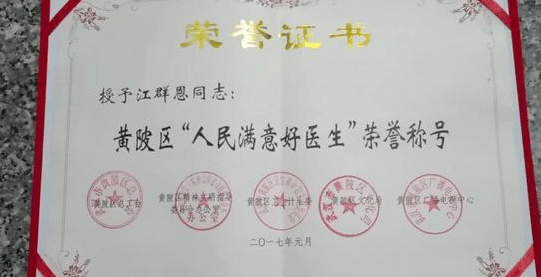 荣誉证书
授予江群恩同志：
黄陂区“人民满意好医生”荣誉称号
黄陂区总工会 黄陂区精神文明指导委员会办公室 黄陂区卫计生委 黄陂区文化局 黄陂区广播电视中心
二〇一七年元月